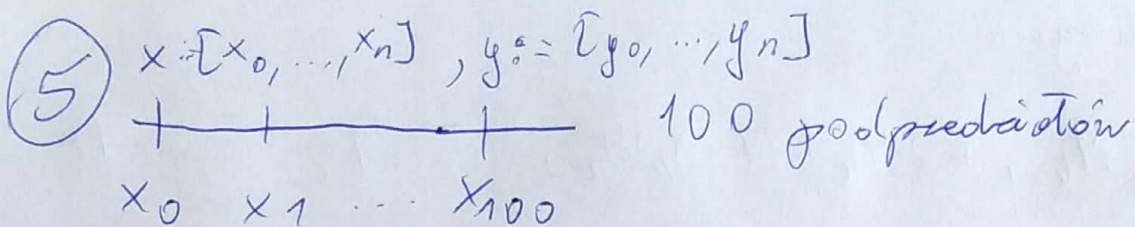 5 x:=[x0,...,xn], y:=[y0,...,yn]
100 podprzedziałów
x0 x1 ... x100